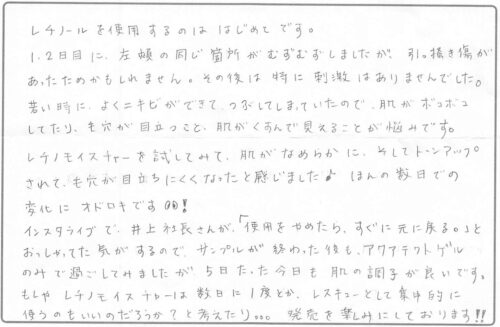 レチノールを使用するのは はじめてです。
1.2日目に、左頬の同じ箇所がむずむずしましたが、引っ掻き傷が
あったためかもしれません。その後は 特に 刺激は ありませんでした。
若い時に、よくニキビができて、つぶしてしまっていたので、肌がボコボコ
してたり、毛穴が目立つこと、肌がくすんで見えることが悩みです。
レチノモイスチャーを試してみて、肌がなめらかに、そしてトーンアップ
されて、毛穴が目立ちにくくなったと感じました♪ ほんの数日での
変化に オドロキです!
インスタライブで、井上社長さんが、「使用をやめたら、すぐに元に戻る。」と
おっしゃってた気がするので、サンプルが終わった後も、アクアテクトゲル
のみで過ごしてみましたが、5日たった今日も 肌の調子が良いです。
もしや レチノモイスチャーは数日に1度とか、レスキューとして集中的に
使うのもいいのだろうか?と考えたり... 発売を楽しみにしております!!